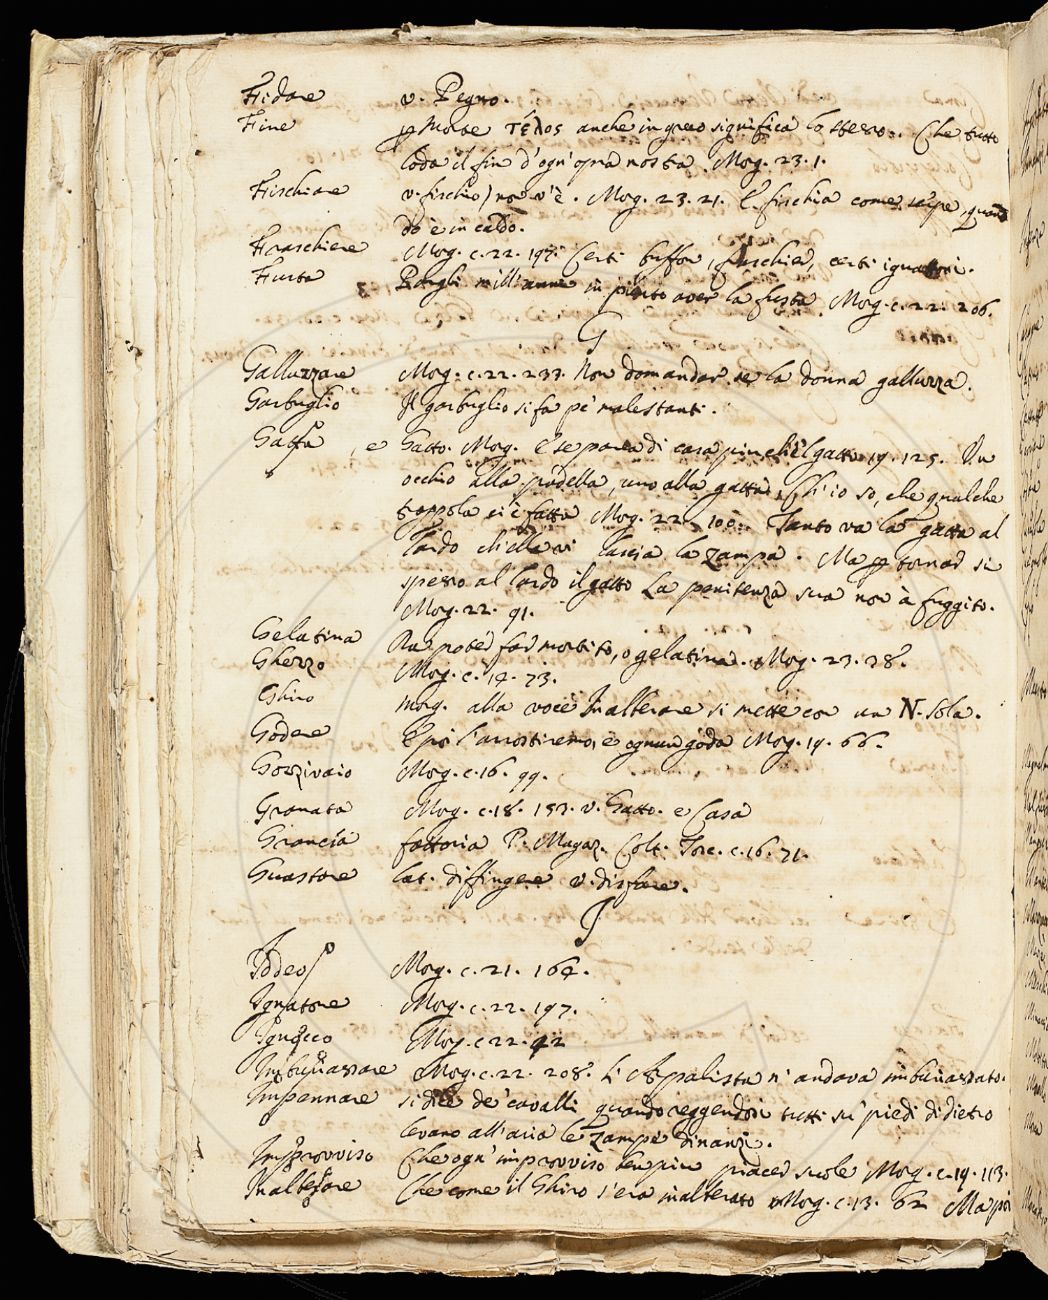 Fidare v. Pegno.
Fine per morte τέλος anche in greco significa lo stesso. Che tutto
loda il fin d'ogn'opra nostra. Morg. 23. 1.
Fischiare v. fischio) non v'è. Morg. 23. 21. E fischia come serpe quan
do è in caldo.
Fraschiere Morg. c. 22. 197. Certi buffon, fraschier, certi ignatoni.
Fusta Pargli mill'anni in punto aver la fusta. Morg. c. 22. 206.
G
Galluzzare Morg. c. 22. 233. Non domandar se la donna galluzza.
Garbuglio Il garbuglio si fa pe' malestanti.
Gatta, e Gatto. Morg. E se parea di casa più che'l gatto 19. 125. Un
occhio alla padella, uno alla gatta, Ch'io so, che qualche
trappola ci è fatta Morg. 22. 100. Tanto va la gatta al
lardo ch'ella vi lascia la zampa. Ma per tornar sì
spesso al lardo il gatto La penitenza sua non à fuggito.
Morg. 22. 91.
Gelatina Da poter far mortito, o gelatina. Morg. 23. 38.
Ghezzo Morg. c. 14. 73.
Ghiro Morg. alla voce Inalterare si mette con un N. sola.
Godere E poi l'arrostiremo, e ognun goda Morg. 19. 66.
Gorzivaio Morg. c. 16. 99.
Granata Morg. c. 18. 153. v. Gatto. e Casa
Grancia fattoria P. Magaz. Colt. Tosc. c. 16. 71.
Guastare lat. diffingere v. disfare.
I
Iddeo Morg. c. 21. 164.
Ignatone Morg. c. 22. 197.
Morg. c 22. 42
Morg. c. 22. 208. n'andava
Impennare si dice de' cavalli quando reggendosi tutti su' piedi di dietro
levano all'aria le zampe dinanzi.
Improvviso Che ogn'improvviso ben più piacer suole Morg. c. 19. 113.
Inalterare Che come il Ghiro s'era inalterato Morg. c. 13. 62 Ma poi